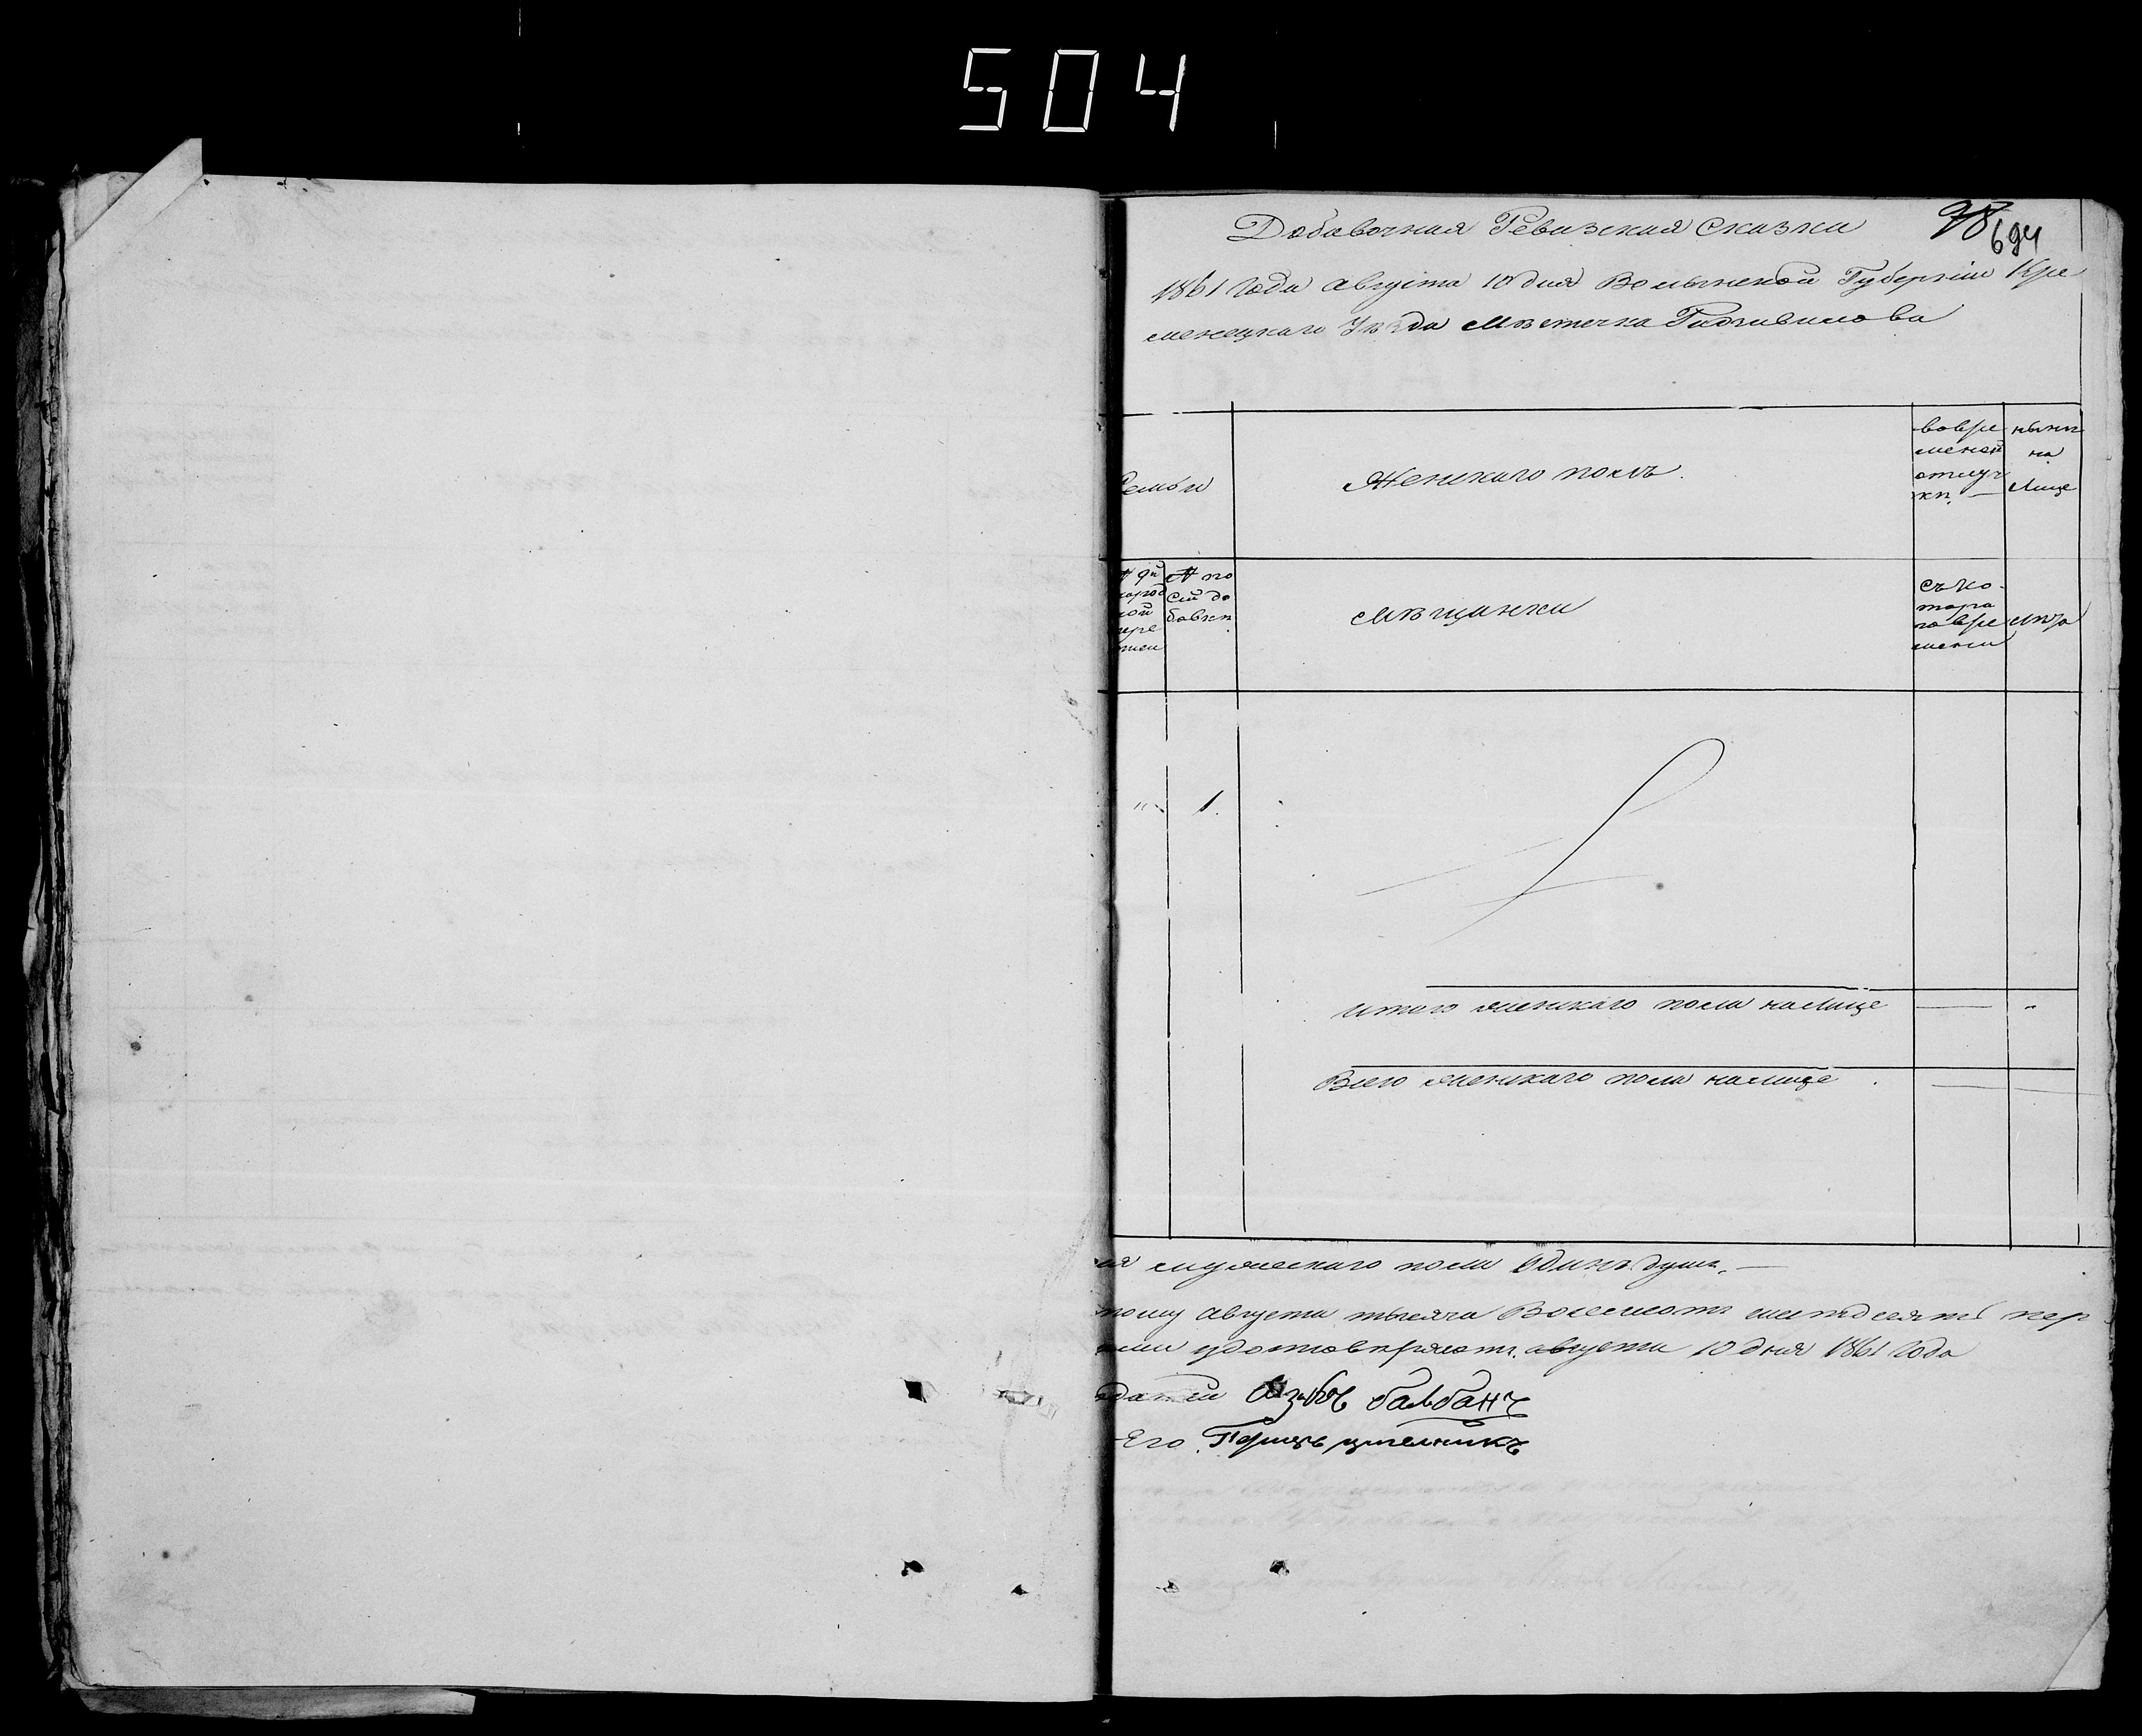 504
Добавочная Ревизская Сказка
694
1861 Года Августа 10 дня Волынской Губерніи Кре
менецкаго Уѣзда Мѣстечка Радзивилова
Семьи
Женскаго полъ.
вовре
меной
отлуч
кѣ. —
нынѣ
на
Лице
№ по
сей до
бавкѣ
Мѣщанки
съ ко-
тора
го вре
мени
Лѣта
1.
итого женскаго пола на Лице
Всего женскаго пола налице
мужескаго пола Одинъ душа. —
Августа тысяча Восемсотъ шестдесятъ пер
удостовѣряютъ. августа 10 дня 1861 Года
балбанъ
Его Герш